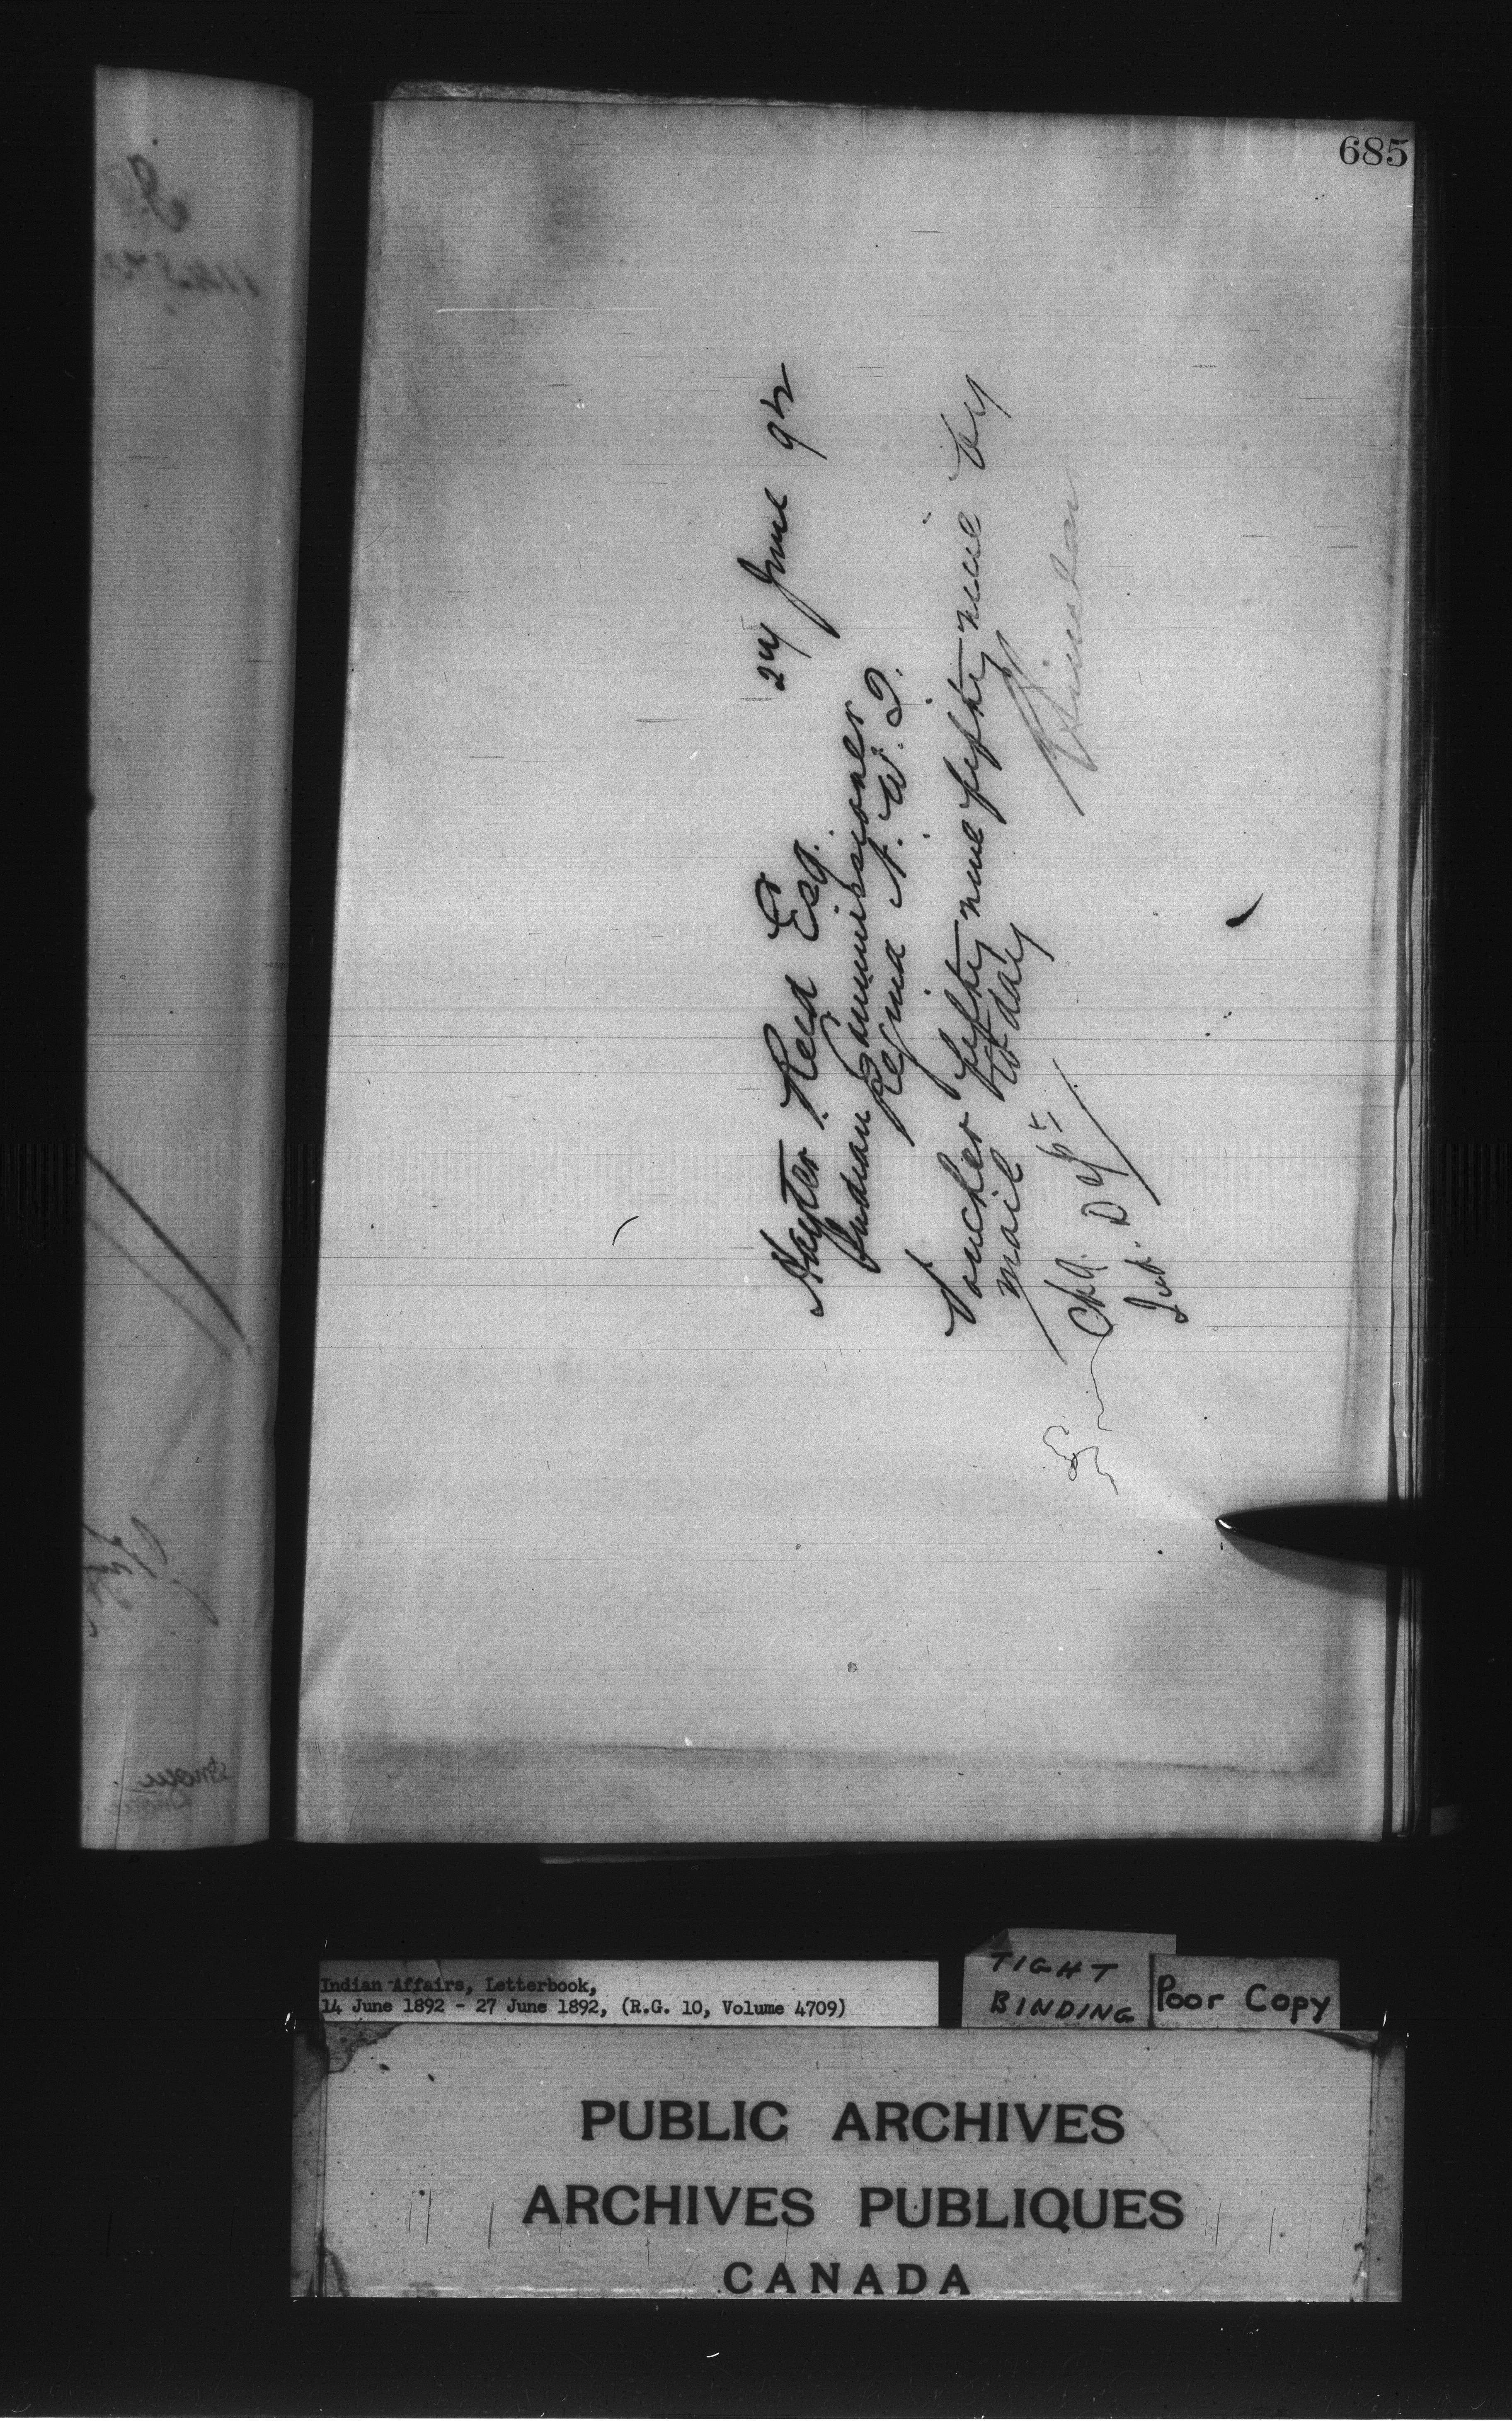 685
24 June 92
Hayter Reed Esq.
Indian Commissioner
Regina N. W. T.
Voucher fifty nine fifty nine by
mail today
Sinclair
Chg. Dept
Ind.
Indian Affairs, Letterbook,
14 June 1892 - 27 June 1892, (R.G. 10, Volume 4709)
TIGHT
BINDING
Poor Copy
PUBLIC ARCHIVES
ARCHIVES PUBLIQUES
CANADA